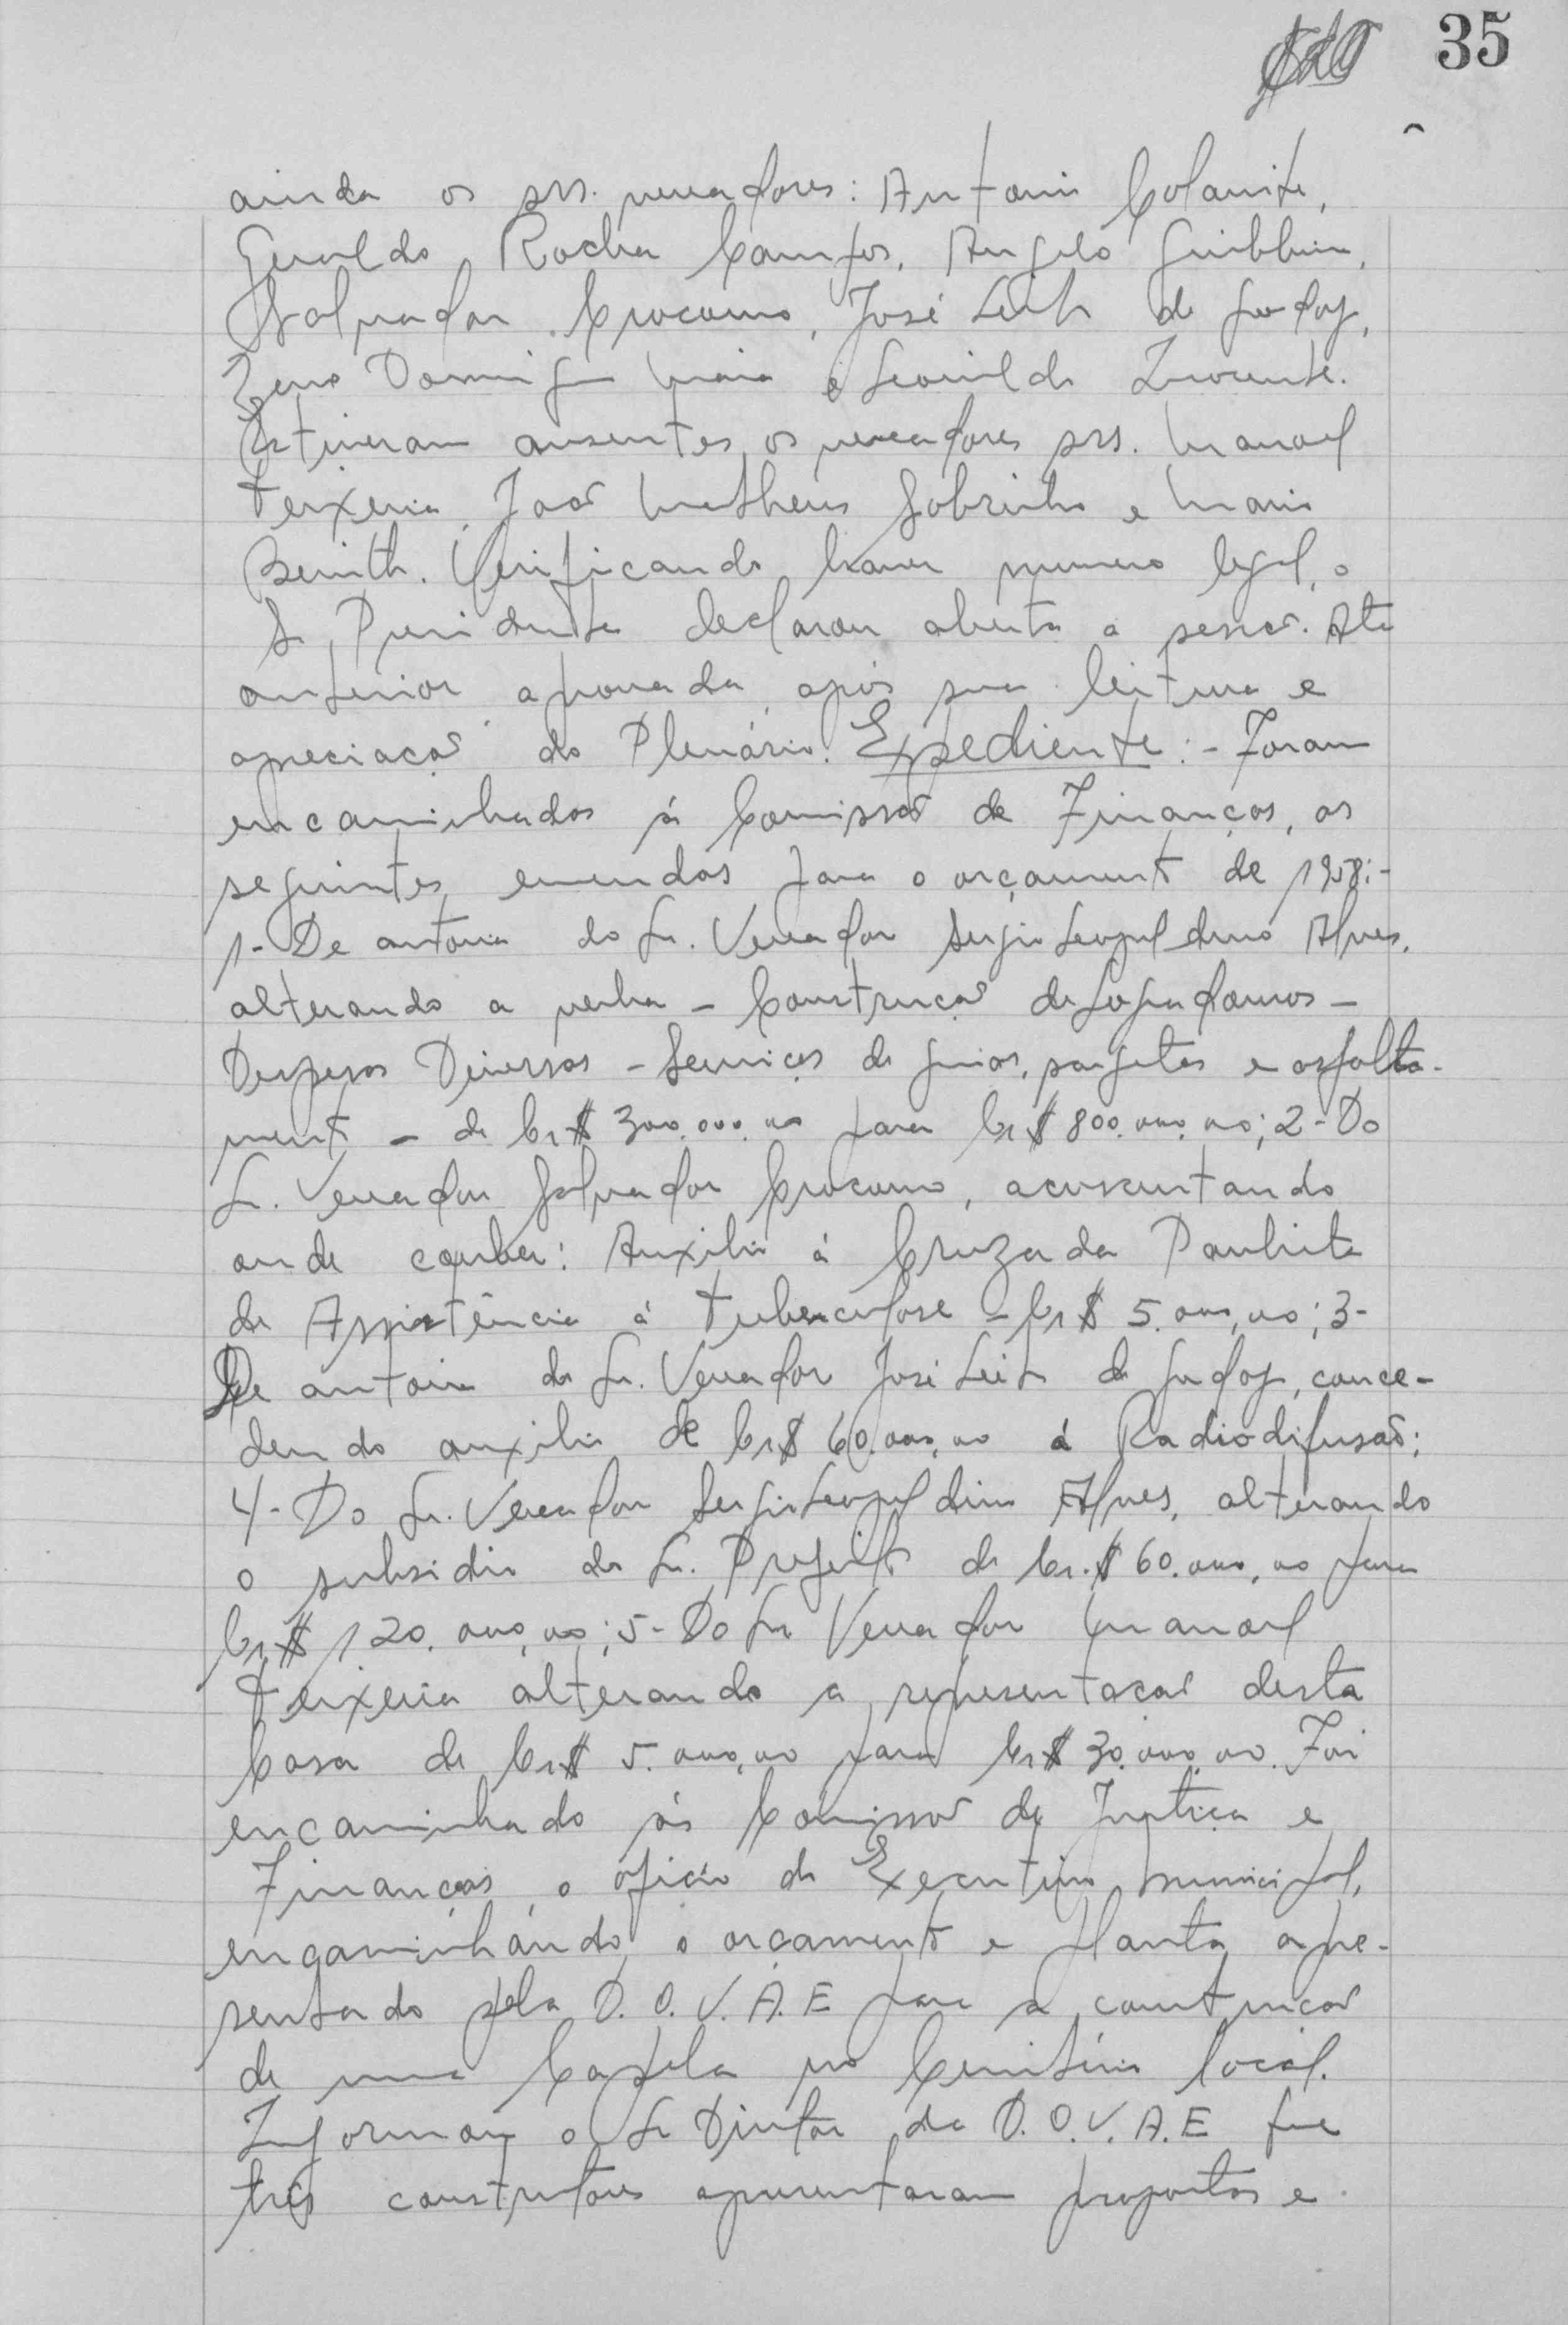 35
ainda os srs. vereadores: Antonio Colarite,
Geraldo Rocha Campos, Angelo
Salvador Crocomo, José Leite de Godoy,
Zeno Domingues Maia e Leonildo
Estiveram ausentes os vereadores srs. Manoel
Teixeira, João Matheus Sobrinho e Mario
Verificando haver numero legal, o
Sr. Presidente declarou aberta a sessão. Ata
anterior aprovada, após sua leitura e
apreciação do Plenário. Expediente:- Foram
encaminhados á Comissão de Finanças, as
seguintes emendas para o orçamento de 1958:-
1- De autoria do Sr. Vereador Sergio Leopoldino Alves,
alterando a verba - Construção de Logradouros -
Despesas Diversas - Serviços de guias, sargetas e asfalta-
mento - de Cr$ 300.000,00 para Cr$ 800.000,00; 2- Do
Sr. Vereador Salvador Crocomo, acrescentando
onde couber: Auxilio á Cruzada Paulista
de Assistência á Tuberculose - Cr$ 5.000,00; 3-
De autoria do Sr. Vereador José Leite de Godoy, conce-
dendo auxilio de Cr$ 60.000,00 á Radiodifusão;
4- Do Sr. Vereador Sergio Leopoldino Alves, alterando
o subsidio do Sr. Prefeito de Cr.$ 60.000,00 para
Cr$ 120.000,00; 5- Do Sr Vereador Manoel
Teixeira alterando a representação desta
Casa de Cr$ 5.000,00 para Cr$ 30.000,00. Foi
encaminhado ás Comissão de Justiça e
Finanças, o oficio do Executivo municipal,
encaminhando o orçamento e planta apre-
sentado pela D.O.V.A.E para a construção
de uma Capela no Cemitério local.
Informou o Sr Diretor da D.O.V.A.E que
três construtores apresentaram propostas e